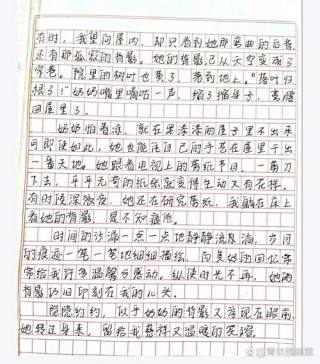 有时，我望向屋内，却只看到她那弯曲的后脊，
还有那孤寂的背影。她的背影已从天空变成了
穹苍。院里的树叶也黄了，落到地上。"落叶归
根了！"奶奶嘴里嘀咕一声，缩了缩身子，蹩腰
回屋里了。
奶奶怕着凉，就在黑漆漆的屋子里不出来
可即使如此，她也能在自己的手艺在屋里干出
一番天地。她跟着电视上的剪纸节目，一剪刀
下去，平平无奇的纸张就变得生动又有花样。
有时候深激夜，她还在研究剪纸，我躺在床上
看她的背影，是不知疲倦。
时间的沙漏一点一点地静静流淌，岁月
的痕迹一笔一笔地细细描绘，向美好的回忆常
常给我许多温馨与感动，纵使时光不再，她的
背影仍旧印刻在我的心头。
隐隐约约，似乎奶奶的背影又浮现在眼前
她转过身来，留给我慈祥又温暖的笑容。